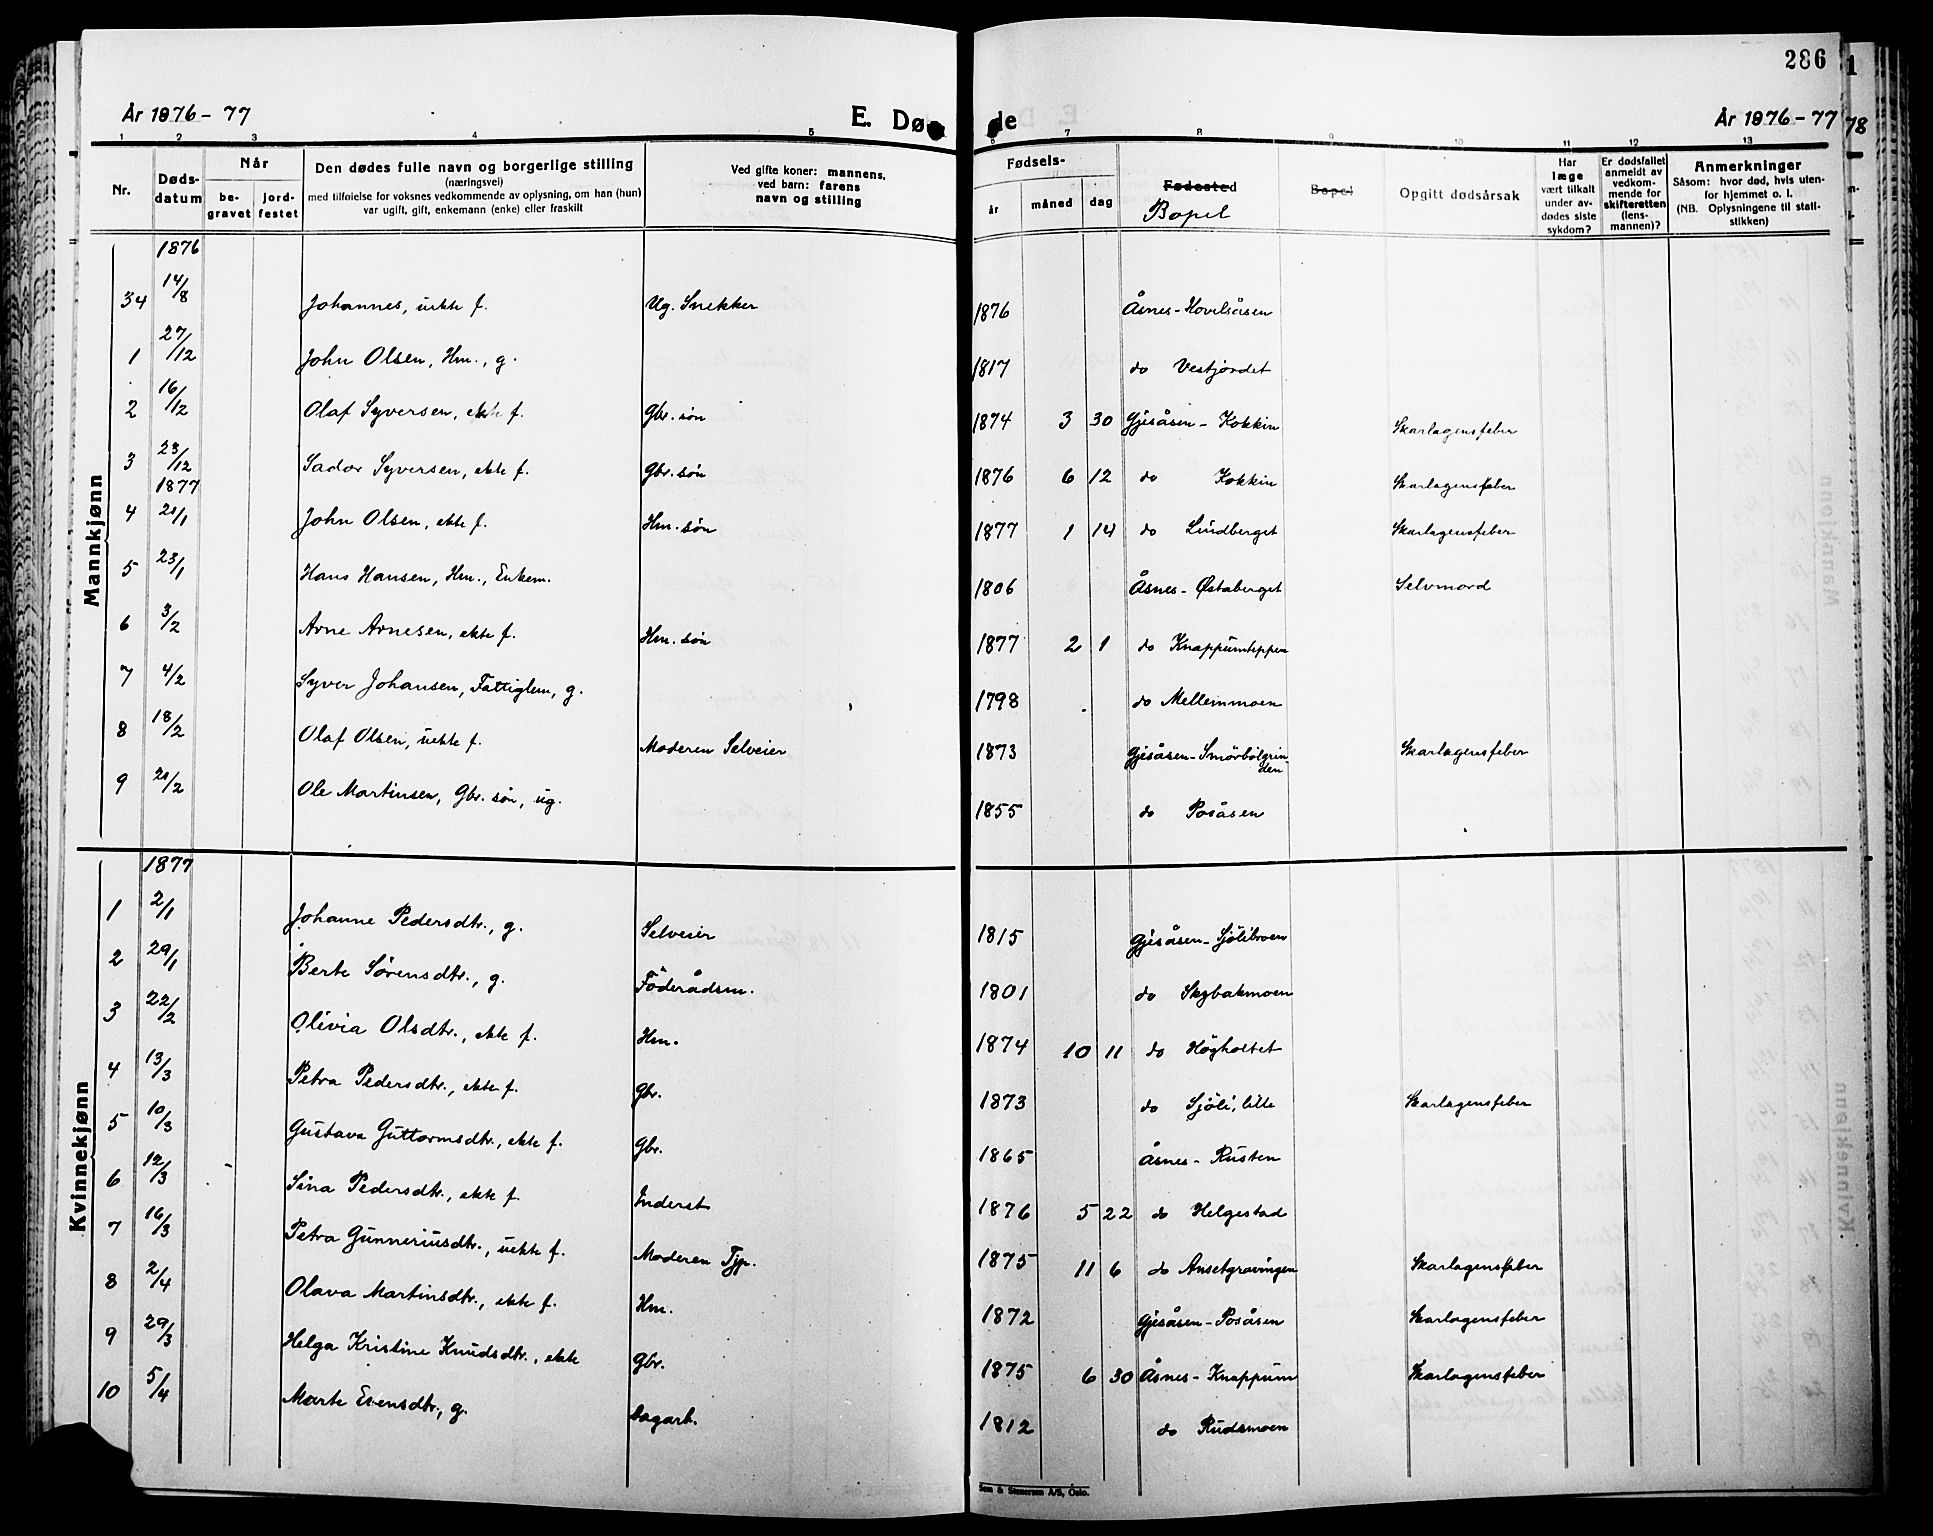 286
År 1876-77 E. Døde År 1876-77
1 2 3 4 5 6 7 8 9 10 11 12 13
Nr. Døds-datum Når be-gravet jord-festet Den dødes fulle navn og borgerlige stilling (næringsvei) med tilføielse for voksnes vedkommende av oplysning, om han (hun) var ugift, gift, enkemann (enke) eller fraskilt Ved gifte koner: mannens, ved barn: farens navn og stilling Fødsels- år måned dag Fødested Bopel Bopel Opgitt dødsårsak Har læge vært tilkalt under av-dødes siste sykdom? Er dødsfallet anmeldt av vedkom-mende for skifteretten (lens-mannen)? Anmerkninger Såsom: hvor død, hvis uten-for hjemmet o. l. (NB. Oplysningene til stati-stikken)
Mannkjønn
1876
34 14/8 Johannes, uekte f. Ug. Snekker 1876 Åsnes-Hovelsåsen
1 27/12 John Olsen, Hm., g. 1817 do Vestjordet
2 16/12 Olaf Syversen, ekte f. Gbr. søn 1874 3 30 Gjesåsen - Kokkin Skarlagensfeber
3 23/12 Sador Syversen, ekte f. Gbr. søn 1876 6 12 do Kokkin Skarlagensfeber
1877
4 21/1 John Olsen, ekte f. Hm. søn 1877 1 14 do Lindberget Skarlagensfeber
5 23/1 Hans Hansen, Hm., Enkem. 1806 Åsnes - Østaberget Selvmord
6 3/2 Arne Arnesen, ekte f. Hm. søn 1877 2 1 do Knappumteppen
7 4/2 Syver Johansen, Fattiglem, g. 1798 do Mellemmoen
8 18/2 Olaf Olsen, uekte f. Moderen Selveier 1873 Gjesåsen-Smörbölgrinden Skarlagensfeber
9 21/2 Ole Martinsen, Gbr. søn, ug. 1855 do Posåsen
Kvinnekjønn
1877
1 2/1 Johanne Pedersdtr., g. Selveier 1815 Gjesåsen-Sjölibroen
2 29/1 Berte Sörensdtr., g. Föderådsm. 1801 do Skybakmoen
3 22/2 Olivia Olsdtr., ekte f. Hm. 1874 10 11 do Högholtet
4 13/3 Petra Pedersdtr., ekte f. Gbr. 1873 do Sjöli, lille Skarlagensfeber
5 10/3 Gustava Guttormsdtr., ekte f. Gbr. 1865 Åsnes - Rusten
6 12/3 Sina Pedersdtr., ekte f. Inderst 1876 5 22 do Helgestad
7 16/3 Petra Gunneriusdtr., uekte f. Moderen Tjp. 1875 11 6 do Ansetgravingen Skarlagensfeber
8 2/4 Olava Martinsdtr., ekte f. Hm. 1872 Gjesåsen-Posåsen Skarlagensfeber
9 29/3 Helga Kristine Knudsdtr., ekte Gbr. 1875 6 30 Åsnes - Knappum Skarlagensfeber
10 5/4 Marte Evensdtr., g. Dagarb. 1812 do Rudsmoen
Sem & Stenersen A/S, Oslo.